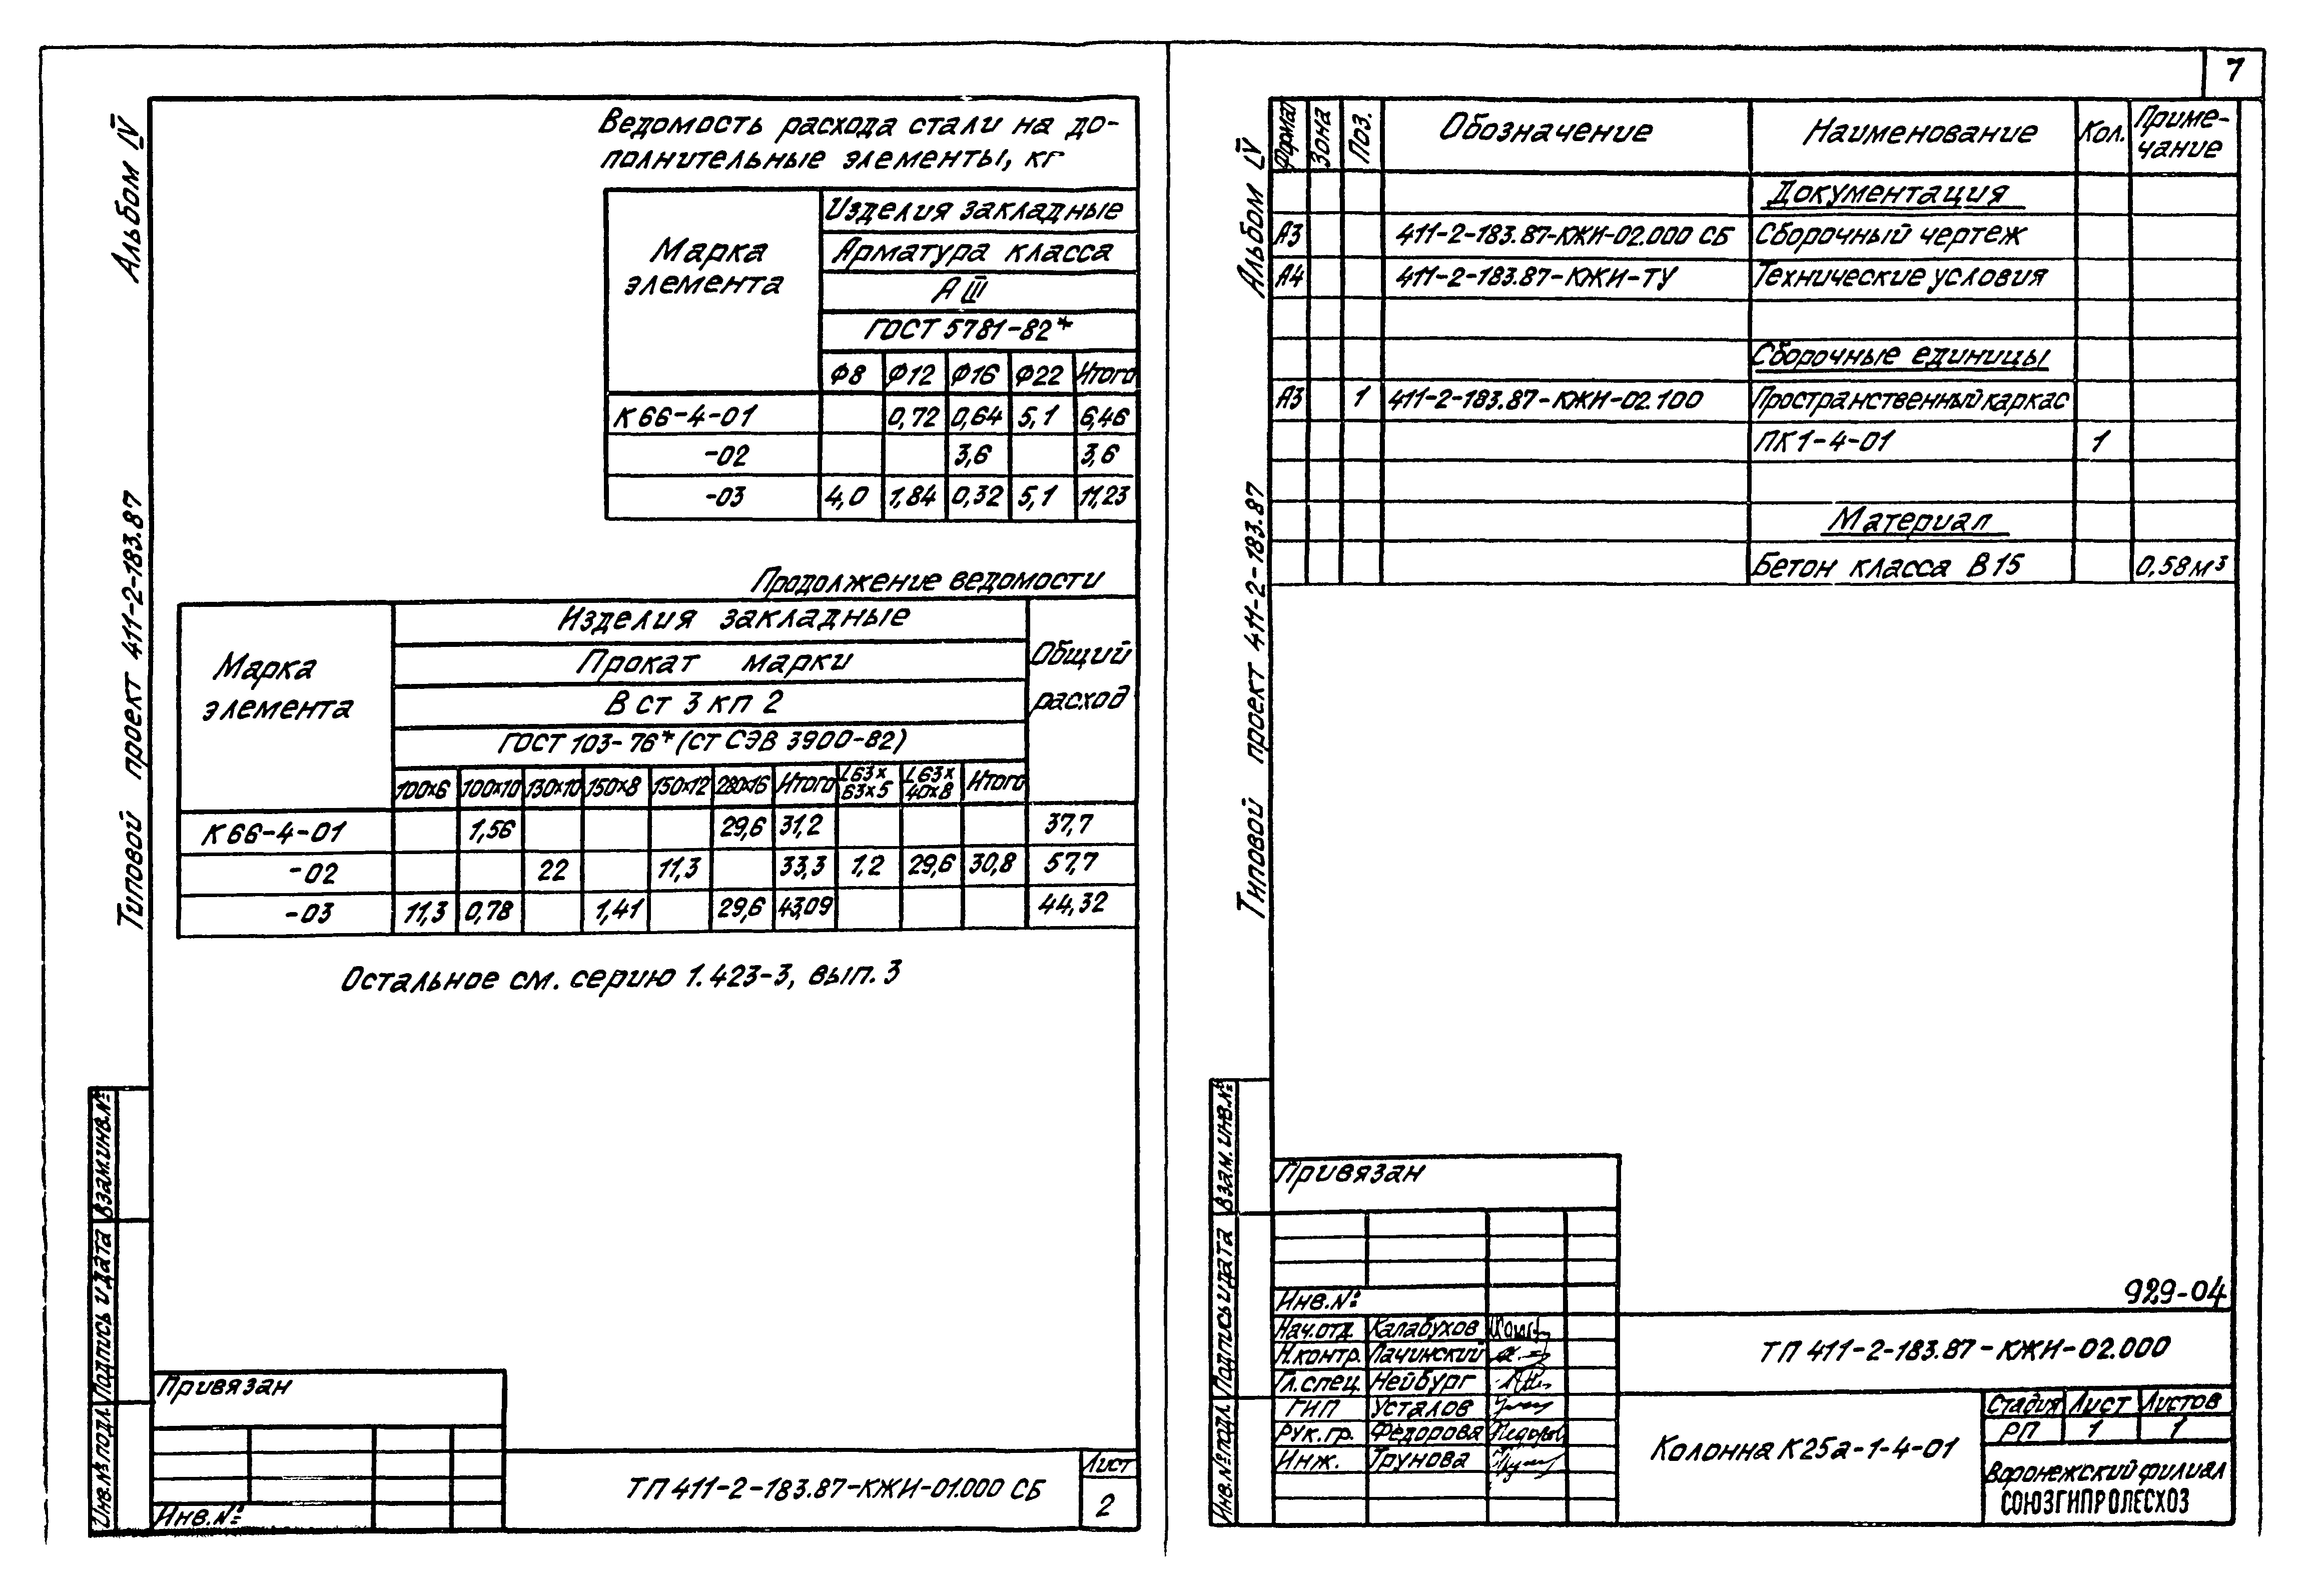 Альбом IV
Типовой проект 411-2-183.87
Ведомость расхода стали на до-
полнительные элементы, кг
Марка элемента
Изделия закладные
Арматура класса
А III
ГОСТ 5781-82*
Ф8 Ф12 Ф16 Ф22 Итого
К 66-4-01 0,72 0,64 5,1 6,46
-02 3,6 3,6
-03 4,0 1,84 0,32 5,1 11,23
Продолжение ведомости
Марка элемента
Изделия закладные
Общий расход
Прокат марки
В ст 3 кп 2
ГОСТ 103-76* (СТ СЭВ 3900-82)
100х6 100х10 130х10 150х8 150х12 280х16 Итого L63х63х5 L63х40х8 Итого
К 66-4-01 1,56 29,6 31,2 37,7
-02 22 11,3 33,3 1,2 29,6 30,8 57,7
-03 11,3 0,78 1,41 29,6 43,09 44,32
Остальное см. серию 1.423-3, вып. 3
Взам.инв.№
Подпись и дата
Инв.№ подл.
Привязан
Инв.№
ТП 411-2-183.87-КЖИ-01.000 СБ
Лист
2
7
Альбом IV
Типовой проект 411-2-183.87
Формат Зона Поз. Обозначение Наименование Кол. Приме-
чание
Документация
А3 411-2-183.87-КЖИ-02.000 СБ Сборочный чертеж
А4 411-2-183.87-КЖИ-ТУ Технические условия
Сборочные единицы
А3 1 411-2-183.87-КЖИ-02.100 Пространственный каркас
ПК1-4-01 1
Материал
Бетон класса В15 0,58м³
Взам.инв.№
Подпись и дата
Инв.№ подл.
Привязан
Инв.№
929-04
Нач.отд. Калабухов
Н.контр. Пачинский
Гл.спец. Нейбург
ГИП Усталов
Рук.гр. Федорова
Инж. Трунова
ТП 411-2-183.87-КЖИ-02.000
Колонна К25а-1-4-01
Стадия Лист Листов
РП 1 1
Воронежский филиал
СОЮЗГИПРОЛЕСХОЗ